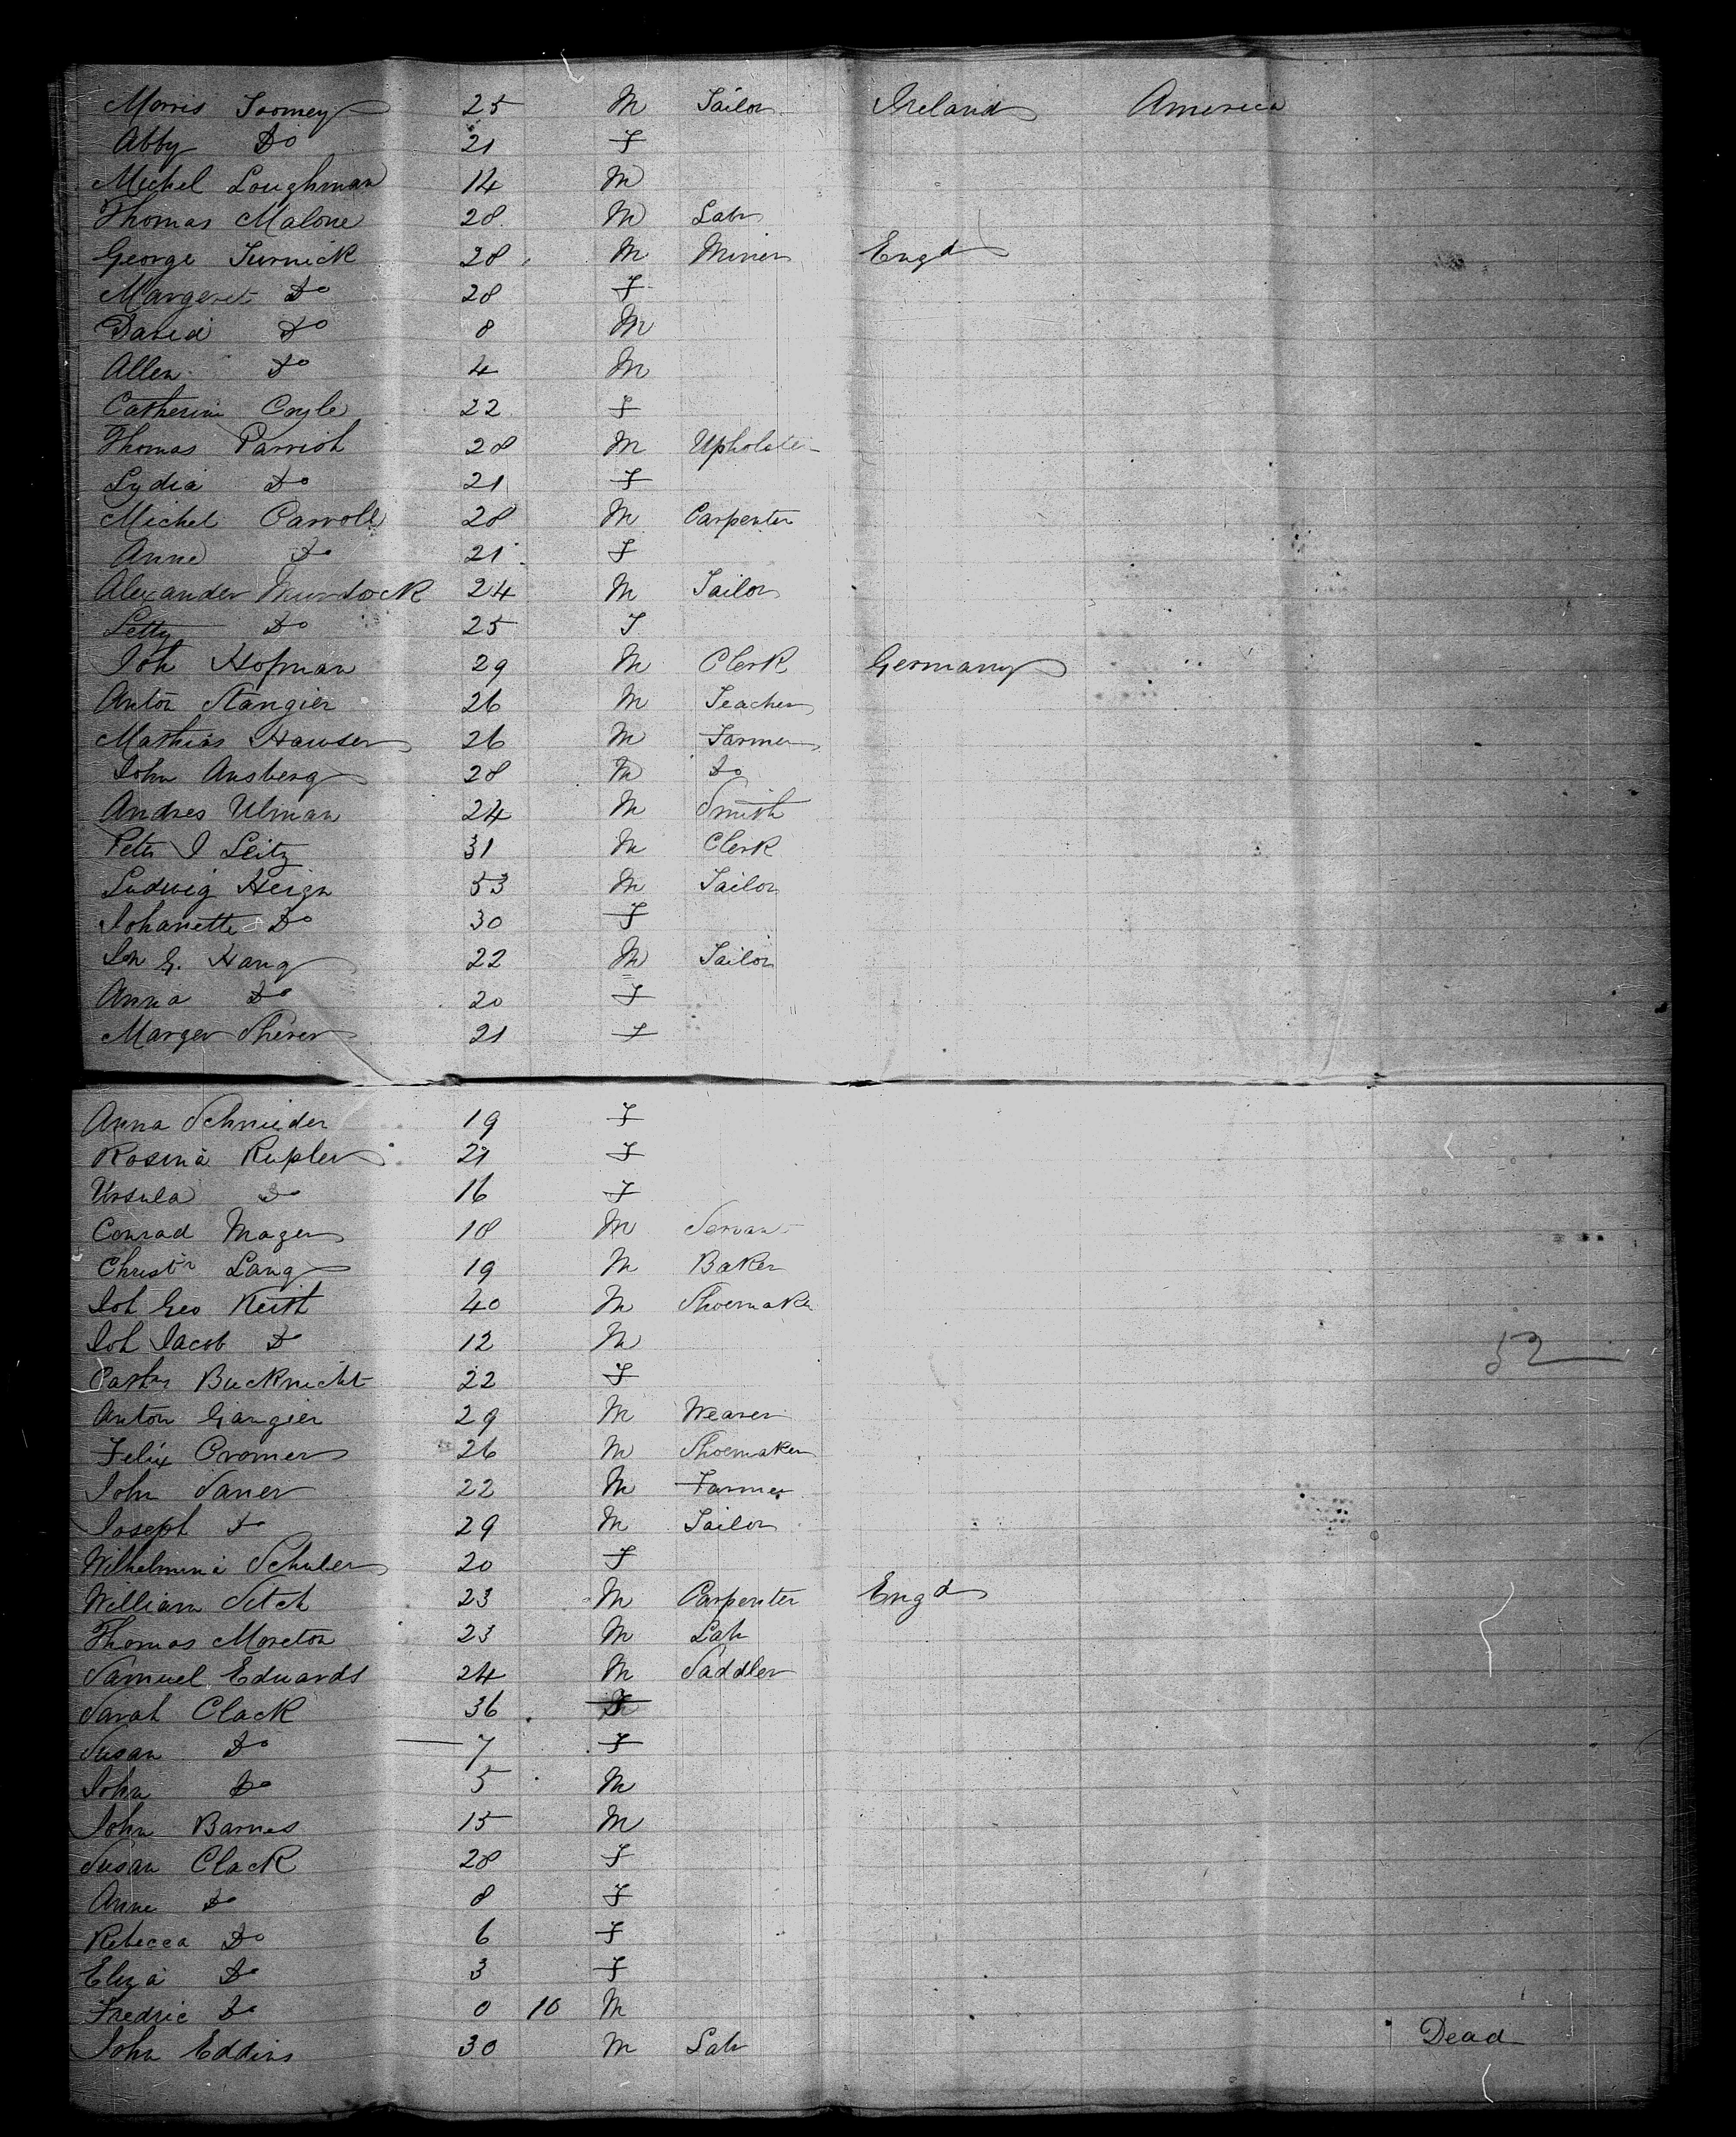 Morris Toomey 25 M Tailor Ireland America
Abby Do 21 F
Michel Loughman 14 M
Thomas Malone 28 M Labr
George Turnick 28 M Miner Engd
Margeret Do 28 F
David Do 8 M
Allen Do 4 M
Catherine Coyle 22 F
Thomas Parrish 28 M Upholste
Lydia Do 21 F
Michel Carroll 28 M Carpenter
Anne Do 21 F
Alexander Murdock 24 M Tailor
Letty Do 25 F
Joh Hofman 29 M Clerk Germany
Anton Stangier 26 M Teacher
Mathias Hauser 26 M Farmer
John Ansberg 28 M Do
Andres Ulman 24 M Smith
Peter J Leitz 31 M Clerk
Ludwig Heign 53 M Tailor
Johanette Do 30 F
Joh G. Hang 22 M Tailor
Anna Do 20 F
Marger Sherer 21 F
Anna Schnieder 19 F
Rosina Kupler 21 F
Ursula Do 16 F
Conrad Mager 18 M Servant
Christn Lang 19 M Baker
Joh Geo Keith 40 M Shoemaker
Joh Jacob Do 12 M 52
Bucknicht 22 F
Anton Gangier 29 M Weaver
Felix Cromer 26 M Shoemaker
John Saner 22 M Farmer
Joseph Do 29 M Tailor
Wilhelmina Schuler 20 F
William Sitch 23 M Carpenter Engd
Thomas Moreton 23 M Lab
Samuel Edwards 24 M Saddler
Sarah Clack 36 F
Susan Do 7 F
John Do 5 M
John Barnes 15 M
Susan Clack 28 F
Anne Do 8 F
Rebecca Do 6 F
Eliza Do 3 F
Fredric Do 0 10 M
John Eddins 30 M Lab Dead